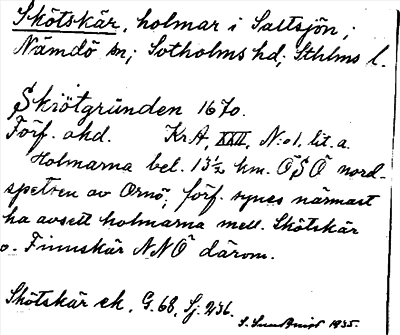 Skötskär, holmar i Saltsjön;
Nämdö sn; Sotholms hd; Sthlms l.
Skiötgrunden 1670.
Förf. okd. KrA, XXII, N:o1, lit. a.
Holmarna bel. 13½ km. ÖSÖ nord-
spetsen av Ornö; förf. synes närmast
ha avsett holmarna mell. Skötskär
o. Finnskär NNÖ därom.
Skötskär ek, G.68, Sj. 236.
S. Sundquist 1935.